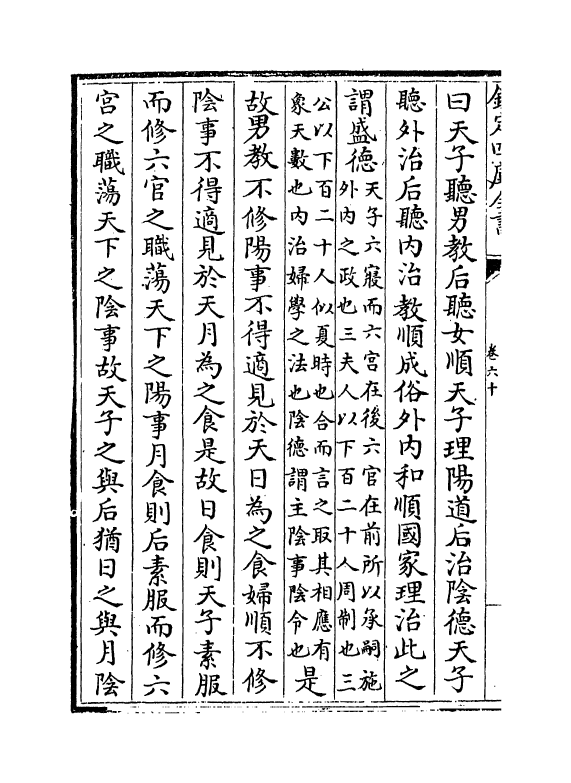 欽定四庫全書
卷六十
曰天子聽男教后聽女順天子理陽道后治陰德天子
聽外治后聽内治教順成俗外内和順國家理治此之
謂盛德天子六寢而六宫在後六官在前所以承嗣施
外内之政也三夫人以下百二十人周制也三
公以下百二十人似夏時也合而言之取其相應有
象天數也内治婦學之法也陰德謂主陰事陰令也是
故男教不修陽事不得適見於天日為之食婦順不修
陰事不得適見於天月為之食是故日食則天子素服
而修六官之職蕩天下之陽事月食則后素服而修六
宫之職蕩天下之陰事故天子之與后猶日之與月陰